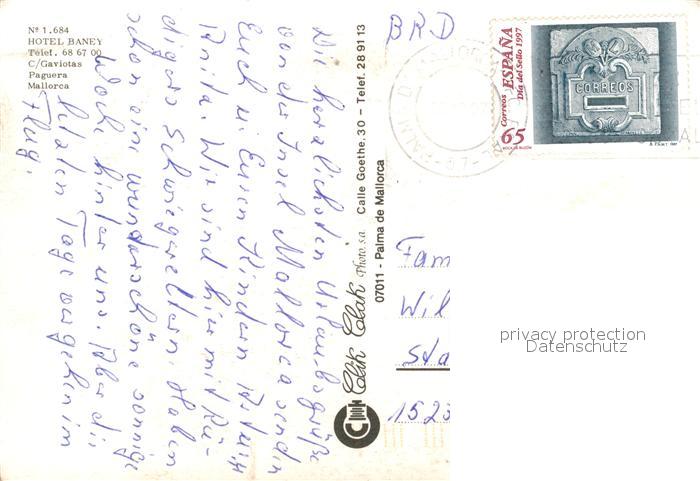 Nº 1.684
HOTEL BANEY
Telef. 68 67 00
C/Gaviotas
Paguera
Mallorca
Die herzlichsten Urlaubsgrüße
von der Insel Mallorca senden
Euch u. Euren Kindern
Anita. Wir sind hier mit Rü-
digers Schwiegereltern. Haben
schon eine wunderschöne sonnige
Woche hinter uns. Aber die
letzten Tage vergehen im
Flug.
Clik Clak Photo, s.a. Calle Goethe, 30 - Telef. 28 91 13
07011 - Palma de Mallorca
BRD
Correos ESPAÑA
Día del Sello 1997
65
CORREOS
Fam
Wil
Sta
1523
privacy protection
Datenschutz